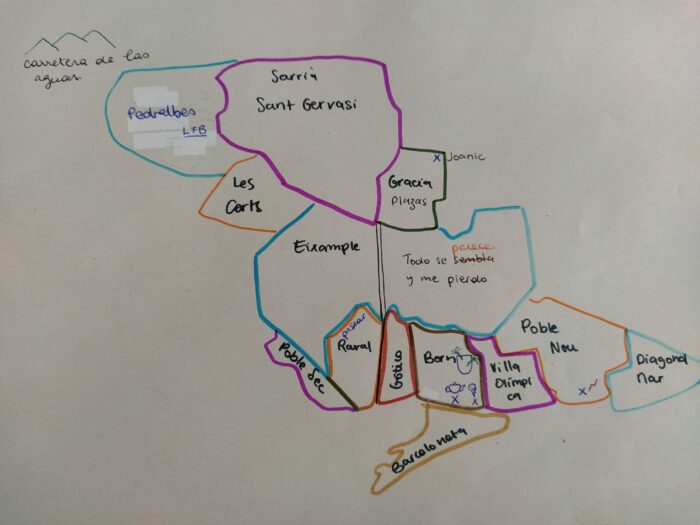 carretera de las
aguas
Pedralbes
LFB
Sarrià
Sant Gervasi
Joanic
Gracia
Plazas
Les
Corts
Eixample
parece
Todo se sembla
y me pierdo
pasear
Raval
Poble Sec
Gótico
Born
Villa
Olímpi
ca
Poble
Nou
Diagonal
Mar
Barceloneta